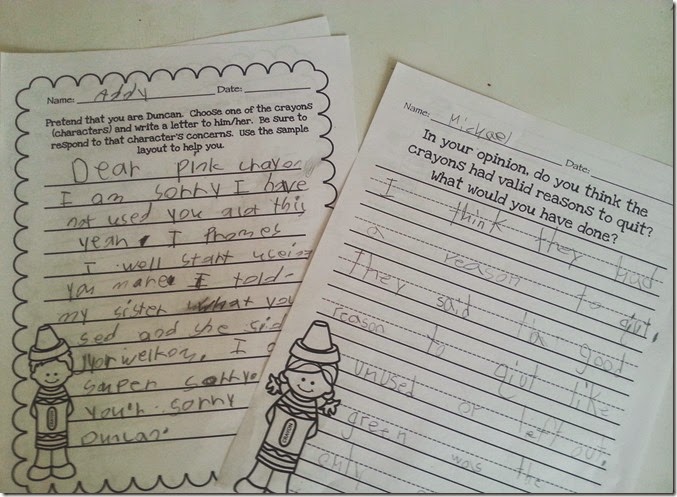 Name: Addy Date:
Pretend that you are Duncan. Choose one of the crayons
(characters) and write a letter to him/her. Be sure to
respond to that character's concerns. Use the sample
layout to help you.
Dear Pink crayon
I am sorry I have
not used you alot this
yeah. I Promes
I well start useing
you more I told
my sister what you
sed and she sid
yorwelkom. I a
super sorry.
your sorry
Duncan.
CRAYON
Name: Mickael Date:
In your opinion, do you think the
crayons had valid reasons to quit?
What would you have done?
I think they had
a reason to quit.
They said good
reason to qiut like
unused or left out.
green was the
only
CRAYON